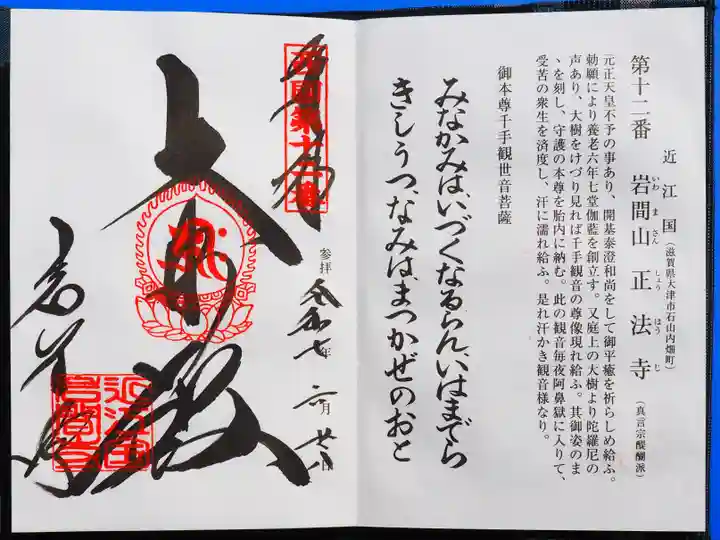 近江国(滋賀県大津市石山内畑町)
第十二番 岩間山正法寺(真言宗醍醐派)
いわ ま さん しょう ほう じ
元正天皇不予の事あり、開基泰澄和尚をして御平癒を祈らしめ給ふ。
勅願により養老六年七堂伽藍を創立す。又庭上の大樹より陀羅尼の
声あり、大樹をけづり見れば千手観音の尊像現れ給ふ。其御姿のま
ゝを刻し、守護の本尊を胎内に納む。此の観音毎夜阿鼻獄に入りて、
受苦の衆生を済度し、汗に濡れ給ふ。是れ汗かき観音様なり。
御本尊千手観世音菩薩
みなかみは、いづくなるらん、いはまでら
きしうつ、なみは、まつかぜのおと
西国第十二番
参拝 令和七年 六月 廿八日
大悲殿
岩間寺
近江国
岩間寺